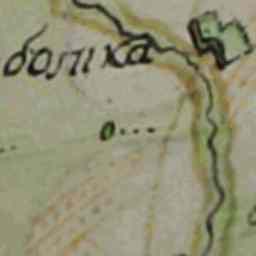 болка
о...